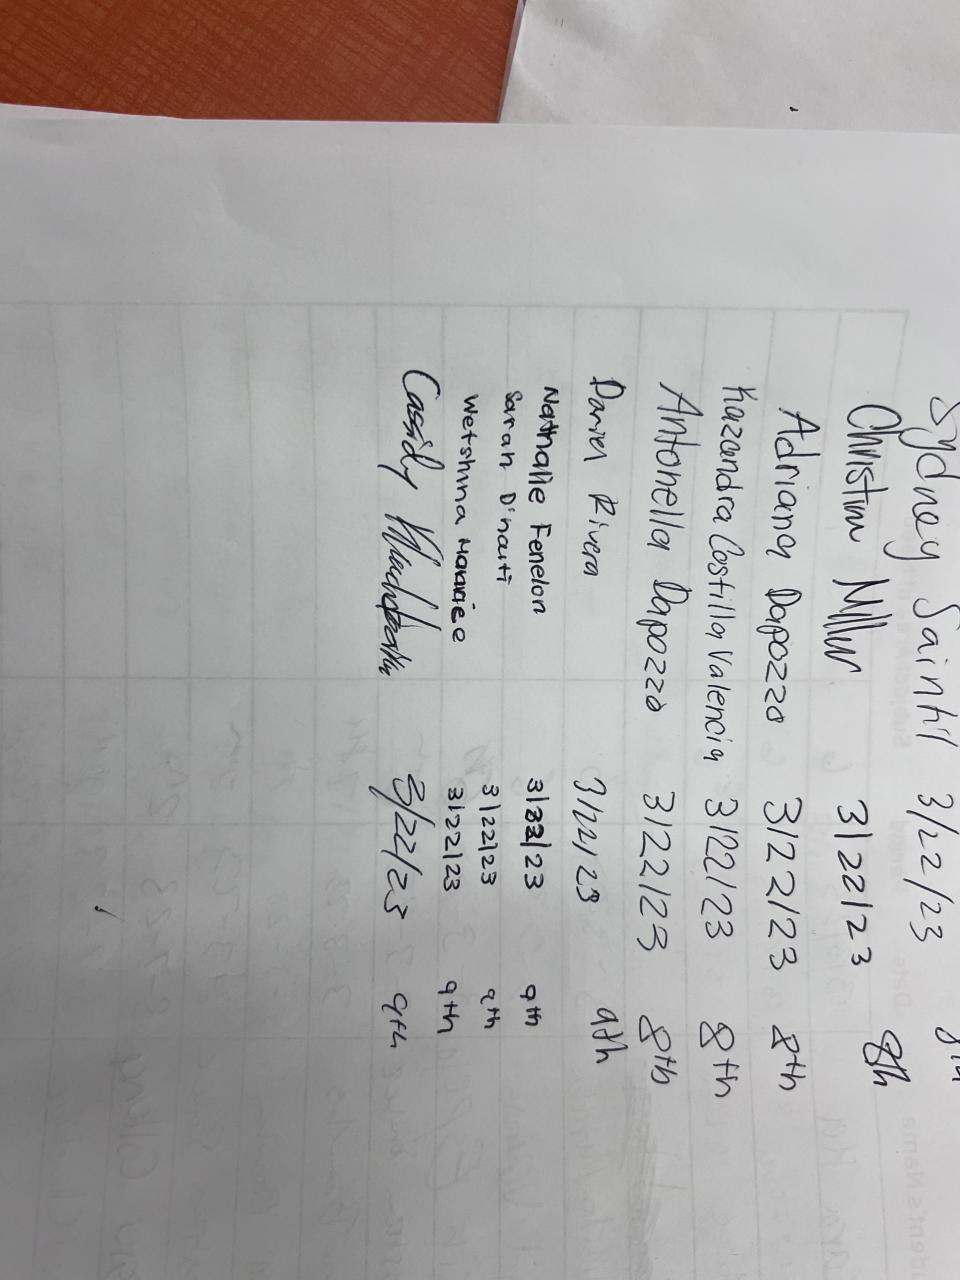 Sydney Saintil 3/22/23
Christine Miller 3/22/23 8th
Adriana Dapozzo 3/22/23 8th
Kazandra Costilla Valencia 3/22/23 8th
Antonella Dapozzo 3/22/23 8th
Daniel Rivera 3/22/23 9th
Nathalie Fenelon 3/22/23 9th
Sarah 3/22/23 9th
3/22/23 9th
Cassidy 3/22/23 9th